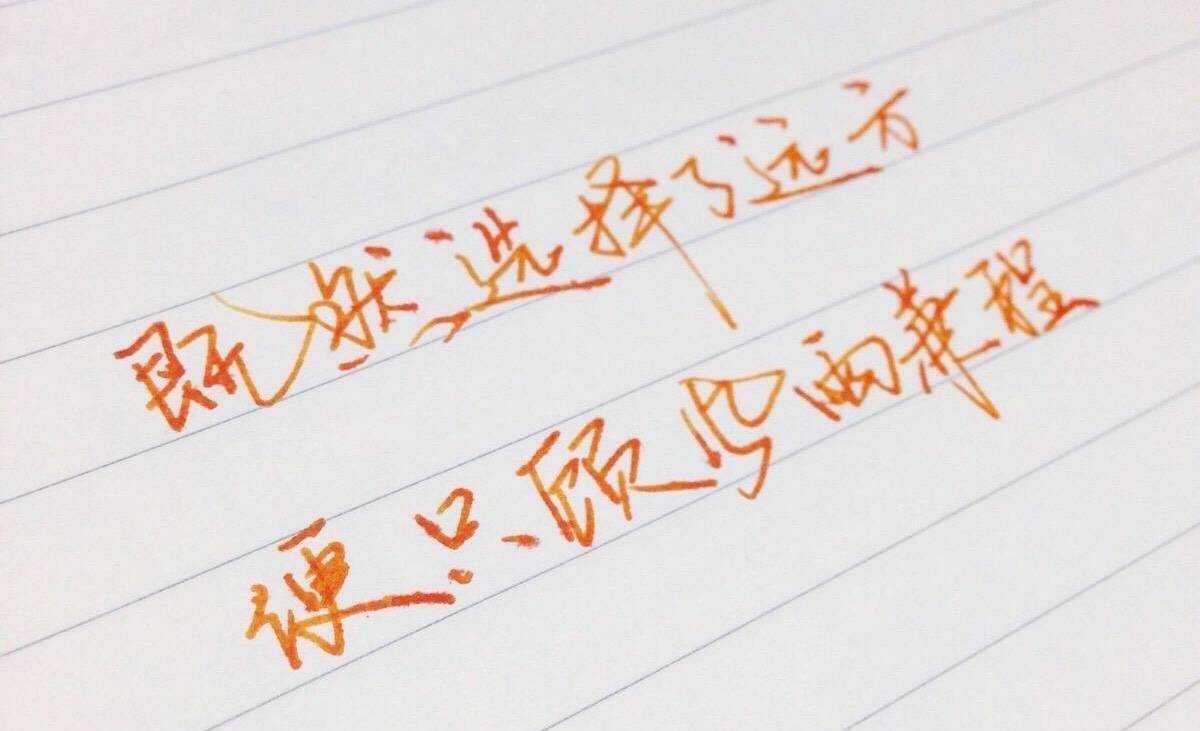 既然选择了远方
便只顾风雨兼程